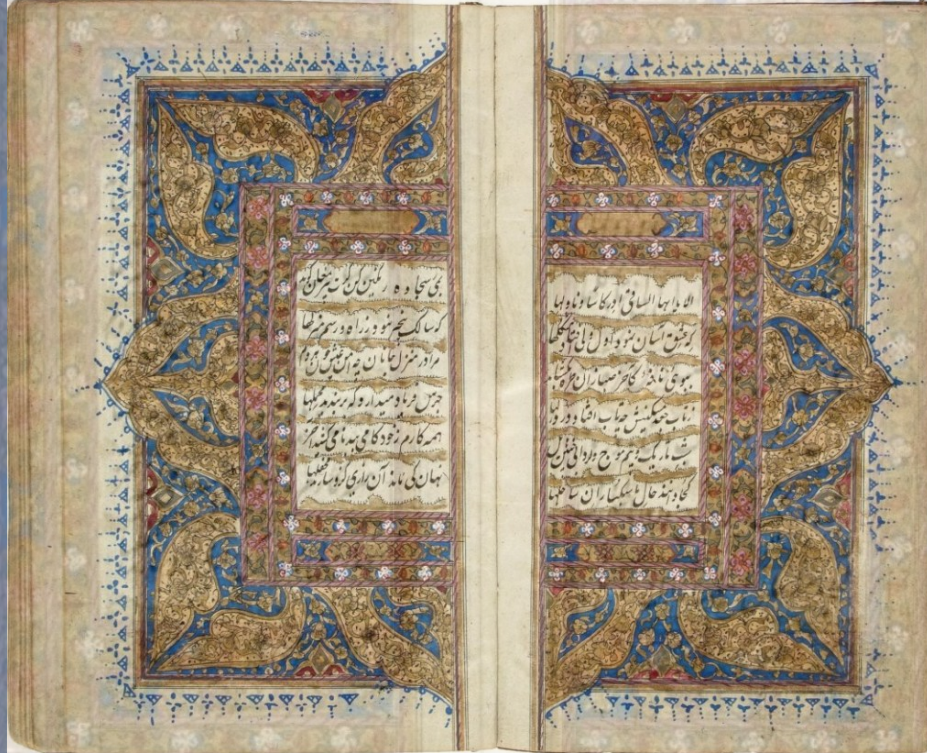 الا یا ایها الساقی ادر کاسا و ناولها
که عشق آسان نمود اول ولی افتاد مشکلها
ببوی نافه کاخر صبا زان طره بگشاید
ز تاب جعد مشکینش چه تاب افتاد در دلها
شب تاریک و بیم موج و گردابی چنین
کجا دانند حال ما سبکباران ساحلها
بمی سجاده رنگین کن گرت پیر مغان گوید
که سالک بیخبر نبود ز راه و رسم منزلها
مرا در منزل جانان چه امن عیش چون هر دم
جرس فریاد میدارد که بربندید محملها
همه کارم ز خود کامی ببدنامی کشید آخر
نهان کی ماند آن رازی کزو سازند محفلها